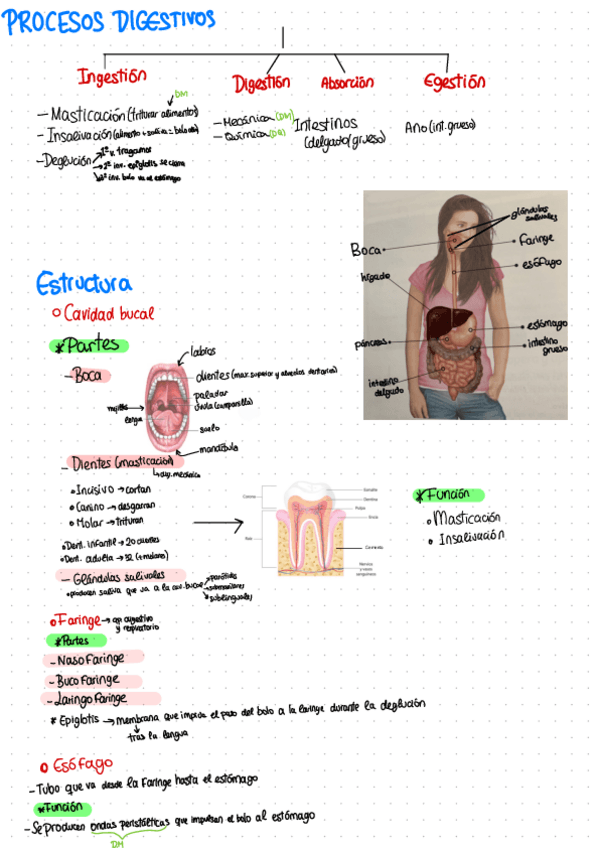 PROCESOS DIGESTIVOS
Ingestión
Digestión
Absorción
Egestión
DM
- Masticación (triturar alimentos)
- Insalivación (alimento + saliva = bolo
- Deglución
1º v. tragamos
2º inv. epiglotis se cierra
3º inv. bolo va al estómago
- Mecánica (DM)
- Química
Intestinos
(delgado/grueso)
Ano (int. grueso)
glándulas
salivales
Boca
Faringe
esófago
hígado
estómago
páncreas
intestino
grueso
intestino
delgado
Estructura
Cavidad bucal
* Partes
- Boca
labios
dientes (max. superior y alveolos dentarios)
paladar
úvula (campanilla)
mejilla
lengua
suelo
mandíbula
- Dientes (masticación)
dig. mecánica
• Incisivo → cortan
• Canino → desgarran
• Molar → trituran
• Dent. infantil → 20 dientes
• Dent. adulta → 32 (+ molares)
Corona
Raíz
Esmalte
Dentina
Pulpa
Encía
Cemento
Nervios
y vasos
sanguíneos
* Función
• Masticación
• Insalivación
- Glándulas salivales
• producen saliva que va a la cav. bucal
parótidas
submaxilares
sublinguales
Faringe → ap. digestivo
y respiratorio
* Partes
- Naso Faringe
- Buco Faringe
- Laringo Faringe
* Epiglotis → membrana que impide el paso del bolo a la laringe durante la deglución
tras la lengua
Esófago
- Tubo que va desde la Faringe hasta el estómago
* Función
- Se producen ondas peristálticas que impulsan el bolo al estómago
DM